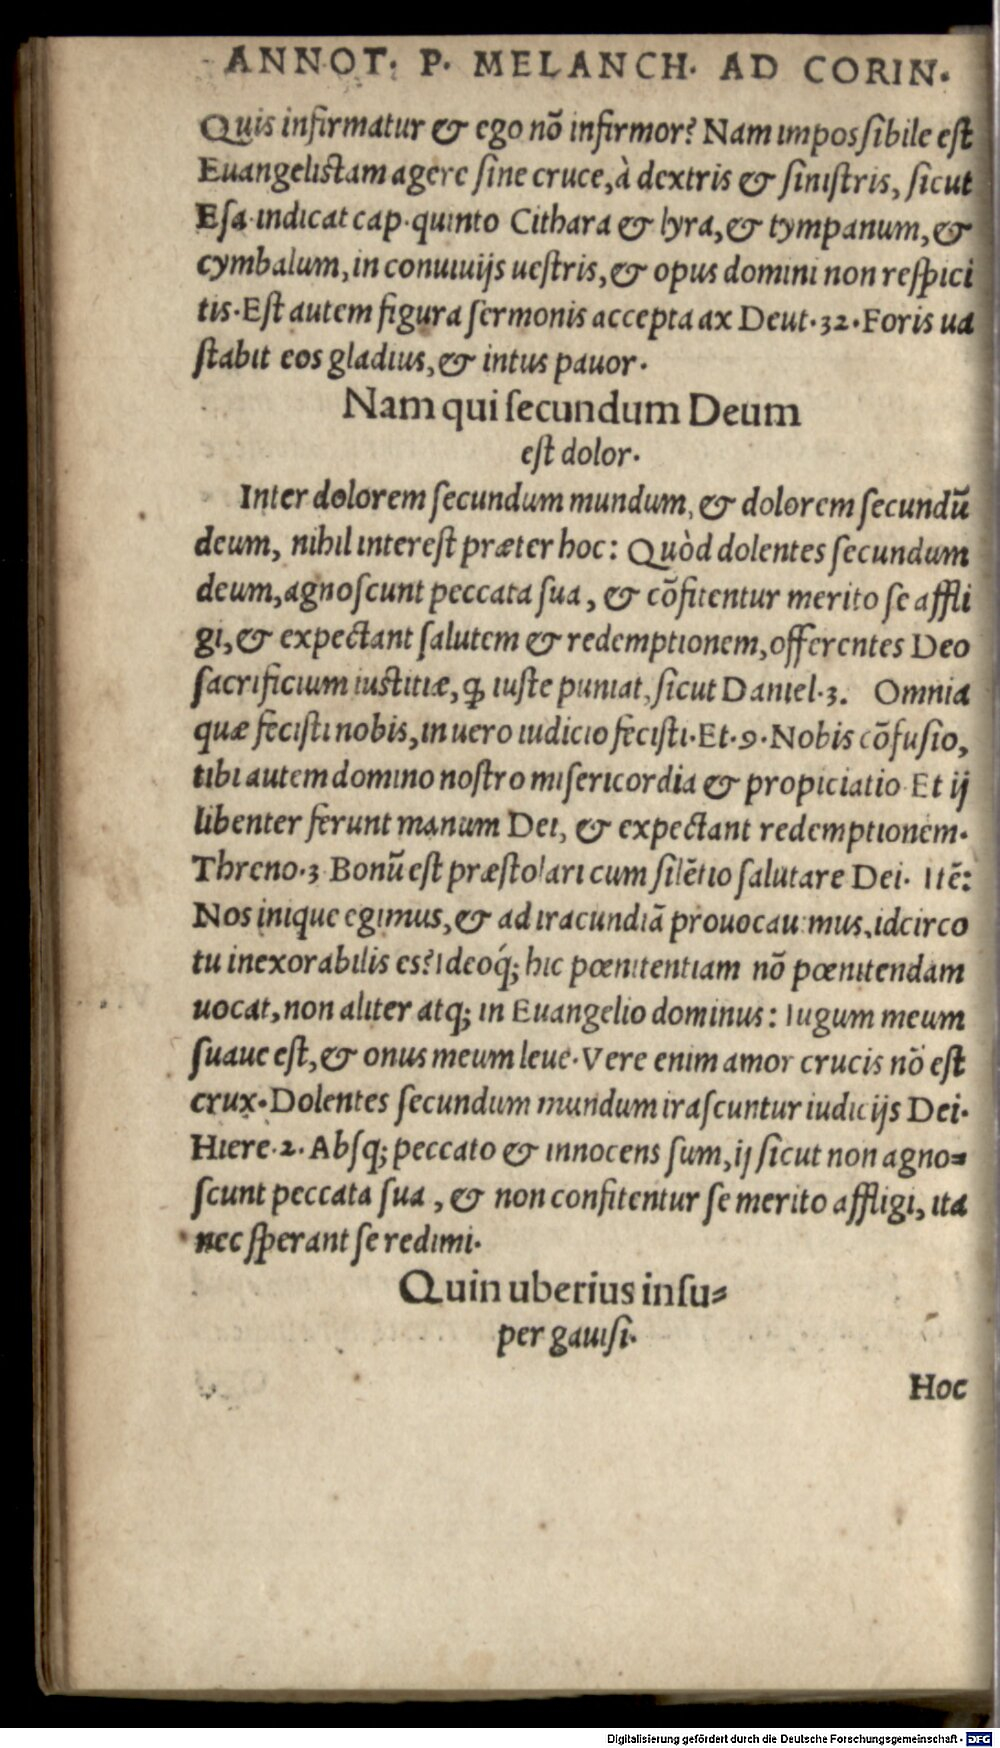 ANNOT. P. MELANCH. AD CORIN.
Quis infirmatur & ego nō infirmor? Nam impossibile est
Euangelistam agere sine cruce, à dextris & sinistris, sicut
Esa. indicat cap. quinto Cithara & lyra, & tympanum, &
cymbalum, in conuiuijs uestris, & opus domini non respici
tis. Est autem figura sermonis accepta ax Deut. 32. Foris ua
stabit eos gladius, & intus pauor.
Nam qui secundum Deum
est dolor.
Inter dolorem secundum mundum, & dolorem secundū
deum, nihil interest præter hoc: Quòd dolentes secundum
deum, agnoscunt peccata sua, & cōfitentur merito se affli
gi, & expectant salutem & redemptionem, offerentes Deo
sacrificium iustitiæ, ꝙ iuste puniat, sicut Daniel. 3. Omnia
quæ fecisti nobis, in uero iudicio fecisti. Et. 9. Nobis cōfusio,
tibi autem domino nostro misericordia & propiciatio Et ij
libenter ferunt manum Dei, & expectant redemptionem.
Threno. 3 Bonū est præstolari cum silētio salutare Dei. Itē:
Nos inique egimus, & ad iracundiā prouocauimus, idcirco
tu inexorabilis es? Ideoq́; hic pœnitentiam nō pœnitendam
uocat, non aliter atq; in Euangelio dominus: Iugum meum
suaue est, & onus meum leue. Vere enim amor crucis nō est
crux. Dolentes secundum mundum irascuntur iudicijs Dei.
Hiere. 2. Absq; peccato & innocens sum, ij sicut non agno=
scunt peccata sua, & non confitentur se merito affligi, ita
nec sperant se redimi.
Quin uberius insu=
per gauisi.
Hoc
Digitalisierung gefördert durch die Deutsche Forschungsgemeinschaft - DFG